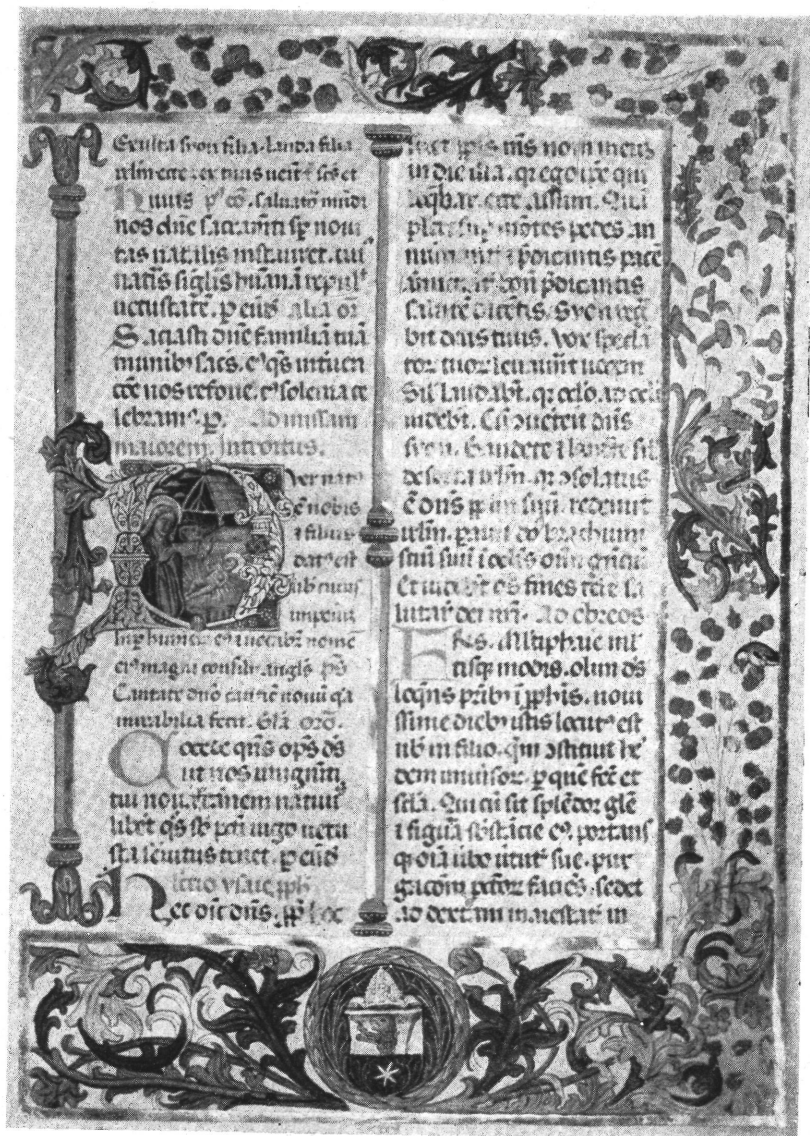 Exulta syon filia. lauda filia
uenit scs et
huius p eo. saluator mundi
nos dne sacramti sp noui
tas natalis instauret. cui
natis siglis humana repul
uetustate. p eund alia or
Saciasti dne familia tua
munib sacs. qs
nos refoue. solemta ce
lebram. p. Ad missam
maiorem. Introitus.
Puer nat
e nobis
i filius
dat est
nob cuius
imperiu
sup humeru ei uocabit nome
ei magni consilii angls ps
Cantate dno cantic nouu qa
mirabilia fecit. Gla oro.
Concede qms ops ds
ut nos unigniti
tui noua p carnem natiui
libet qs sb pcti iugo uetu
sta seruitus tenet. p eund
Lectio ysaie pph
Hec dic dns. pp hoc
sciet ppls ms nomen meu
in die illa. qr ego ipse qui
loqbar ecce assum. Qua
plcri sup motes pedes an
nunciant i pdicantis pace
anunciat bon pdicantis
salute dicetis. Syon reg
bit deus tuus. Vox specla
tor tuor leuauerut uocem
Sil laudabt. qr oclo. ad oclu
uidebt. Cu quterit dns
syon. Gaudete i laudate sil
deserta irlm. qr osolatus
e dns pplm suu. redemit
irlm. parauit do brachium
scm suu i oclis oim gentiu
Et uidebt os fines tere sa
lutar dei nri. Ad ebreos
Fres. Multiphaie ml
tisq modis. olim ds
loqns prib i pphis. noui
ssime dieb istis locut est
nb in filio. que ostituit he
dem uniusor. p que fec et
scla. Qui cu sit splendor gle
i figura sbstacie ei. portans
q oia ubo uirtut sue. pur
gacom pctor faciens. sedet
ad dextram maiestat in